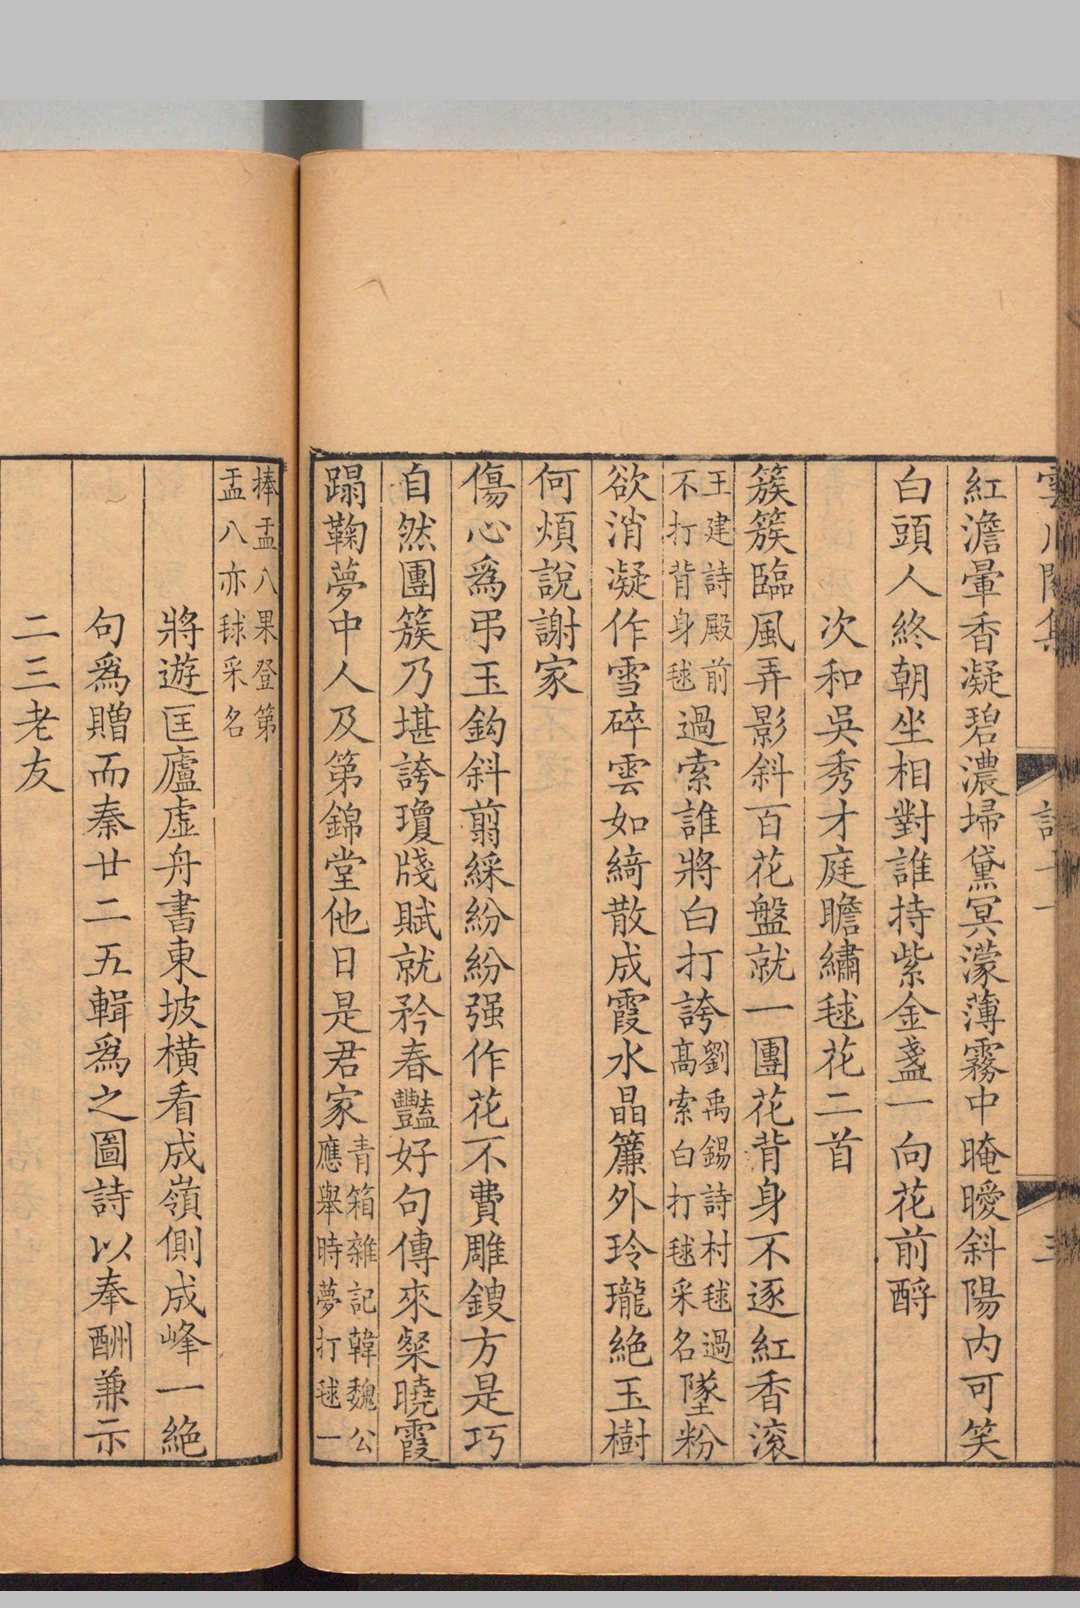 紅澹暈香凝碧濃埽黛冥濛薄霧中晻曖斜陽内可笑
白頭人終朝坐相對誰持紫金盞一向花前酹
次和吳秀才庭瞻繡毬花二首
簇簇臨風弄影斜百花盤就一團花背身不逐紅香滚
王建詩殿前
不打背身毬
過索誰將白打誇
劉禹錫詩村毬過
高索白打毬采名
墜粉
欲消凝作雪碎雲如綺散成霞水晶簾外玲瓏絶玉樹
何煩說謝家
傷心爲弔玉鈎斜剪綵紛紛强作花不費雕鎪方是巧
自然團簇乃堪誇瓊牋賦就矜春豔好句傳來粲曉霞
蹋鞠夢中人及第錦堂他日是君家
青箱雜記韓魏公
應舉時夢打毬一
捧盂八果登第
盂八亦毬采名
將遊匡廬虛舟書東坡橫看成嶺側成峰一絶
句爲贈而秦廿二五輯爲之圖詩以奉酬兼示
二三老友